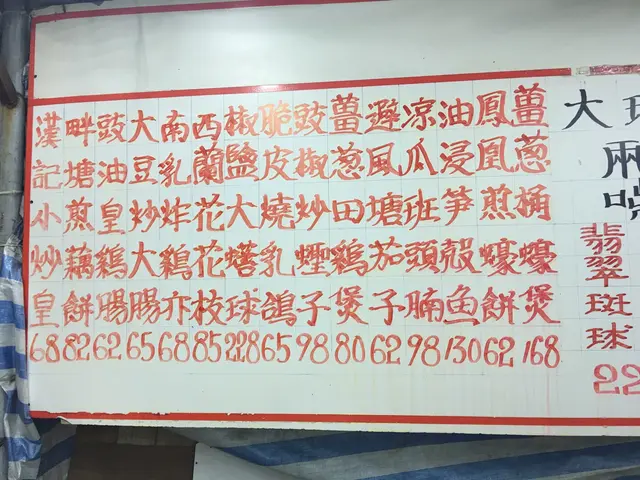 翡翠斑球
薑葱桶蠔煲 168
鳳凰煎蠔餅 62
油浸笋殼魚 130
凉瓜班頭腩 98
避風塘茄子 62
薑葱田鷄煲 80
豉椒炒蟶子 98
脆皮燒乳鴿 65
椒鹽大蟮球 228
西蘭花花枝 85
南乳炸鷄亦 68
大豆炒大腸 65
豉油皇鵝腸 62
畔塘煎藕餅 82
漢記小炒皇 68